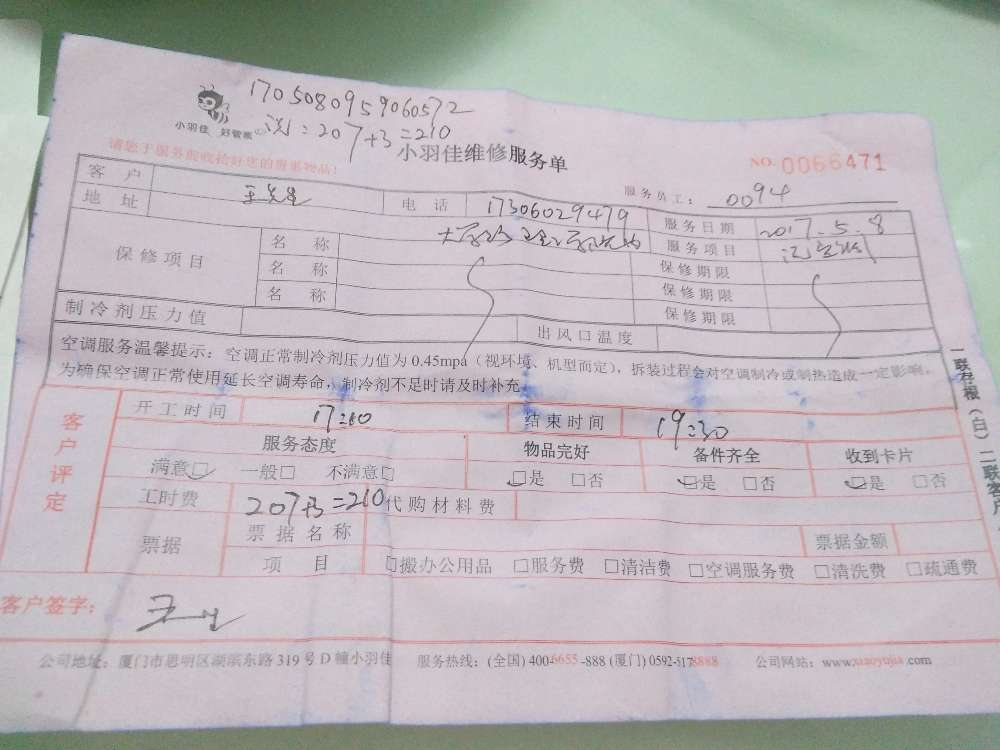 1705080959060572
小羽佳 好管家
207+3=210
小羽佳维修服务单
请您于服务前收拾好您的贵重物品!
NO.0066471
服务员工: 0094
客 户 王先生 电 话 17306029479 服务日期 2017.5.8
地 址 服务项目
保修项目 名 称 保修期限
名 称 保修期限
名 称 保修期限
制冷剂压力值 出风口温度
空调服务温馨提示: 空调正常制冷剂压力值为 0.45mpa(视环境、机型而定),拆装过程会对空调制冷或制热造成一定影响,
为确保空调正常使用延长空调寿命,制冷剂不足时请及时补充
客户评定
开工时间 17:10 结束时间 19:30
服务态度 物品完好 备件齐全 收到卡片
满意□ 一般□ 不满意□ □是 □否 □是 □否 □是 □否
工时费 207+3=210 代购材料费
票据 票据名称 票据金额
项 目 □搬办公用品 □服务费 □清洁费 □空调服务费 □清洗费 □疏通费
客户签字:
公司地址: 厦门市思明区湖滨东路 319 号 D 幢小羽佳 服务热线: (全国) 400-6655-888 (厦门) 0592-5178888 公司网站: www.xiaoyujia.com
一联存根(白) 二联客户